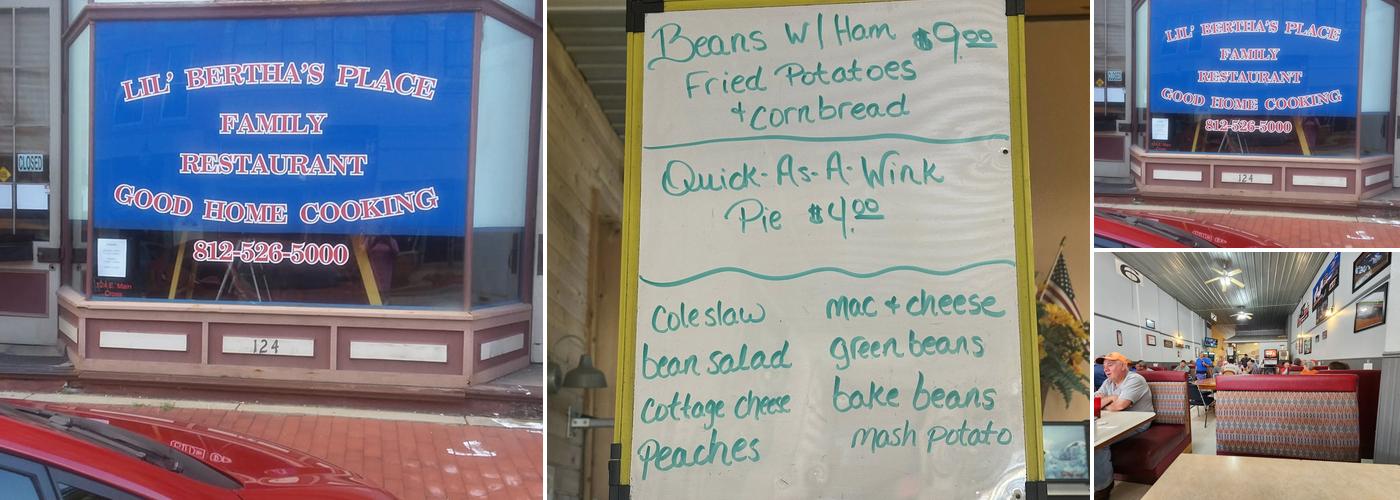 LIL' BERTHA'S PLACE
FAMILY
RESTAURANT
GOOD HOME COOKING
812-526-5000
CLOSED
124 E. Main
Cross
124
Beans w/ Ham $9.00
Fried Potatoes
+ Cornbread
Quick-As-A-Wink
Pie $4.00
Coleslaw mac + cheese
bean salad green beans
Cottage cheese bake beans
Peaches mash potato
LIL' BERTHA'S PLACE
FAMILY
RESTAURANT
GOOD HOME COOKING
812-526-5000
124